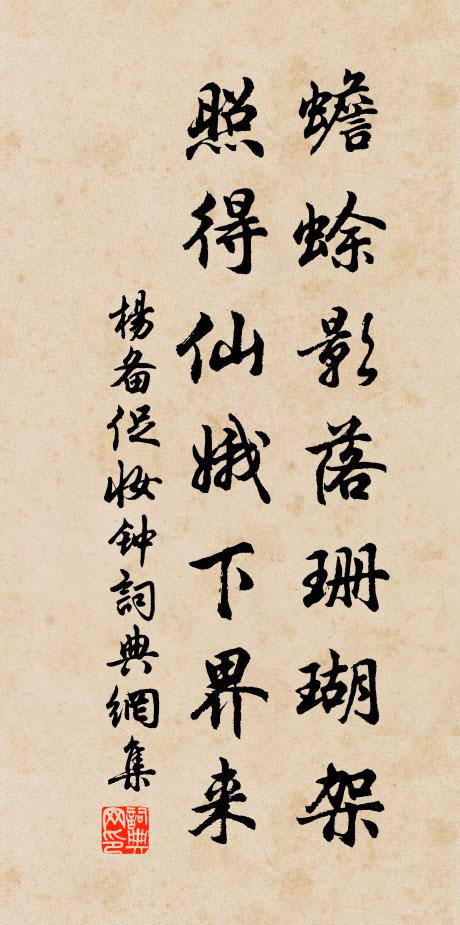 蟾蜍影落珊瑚架
照得仙娥下界来
楊备促妆钟詞典網集
詞典网印